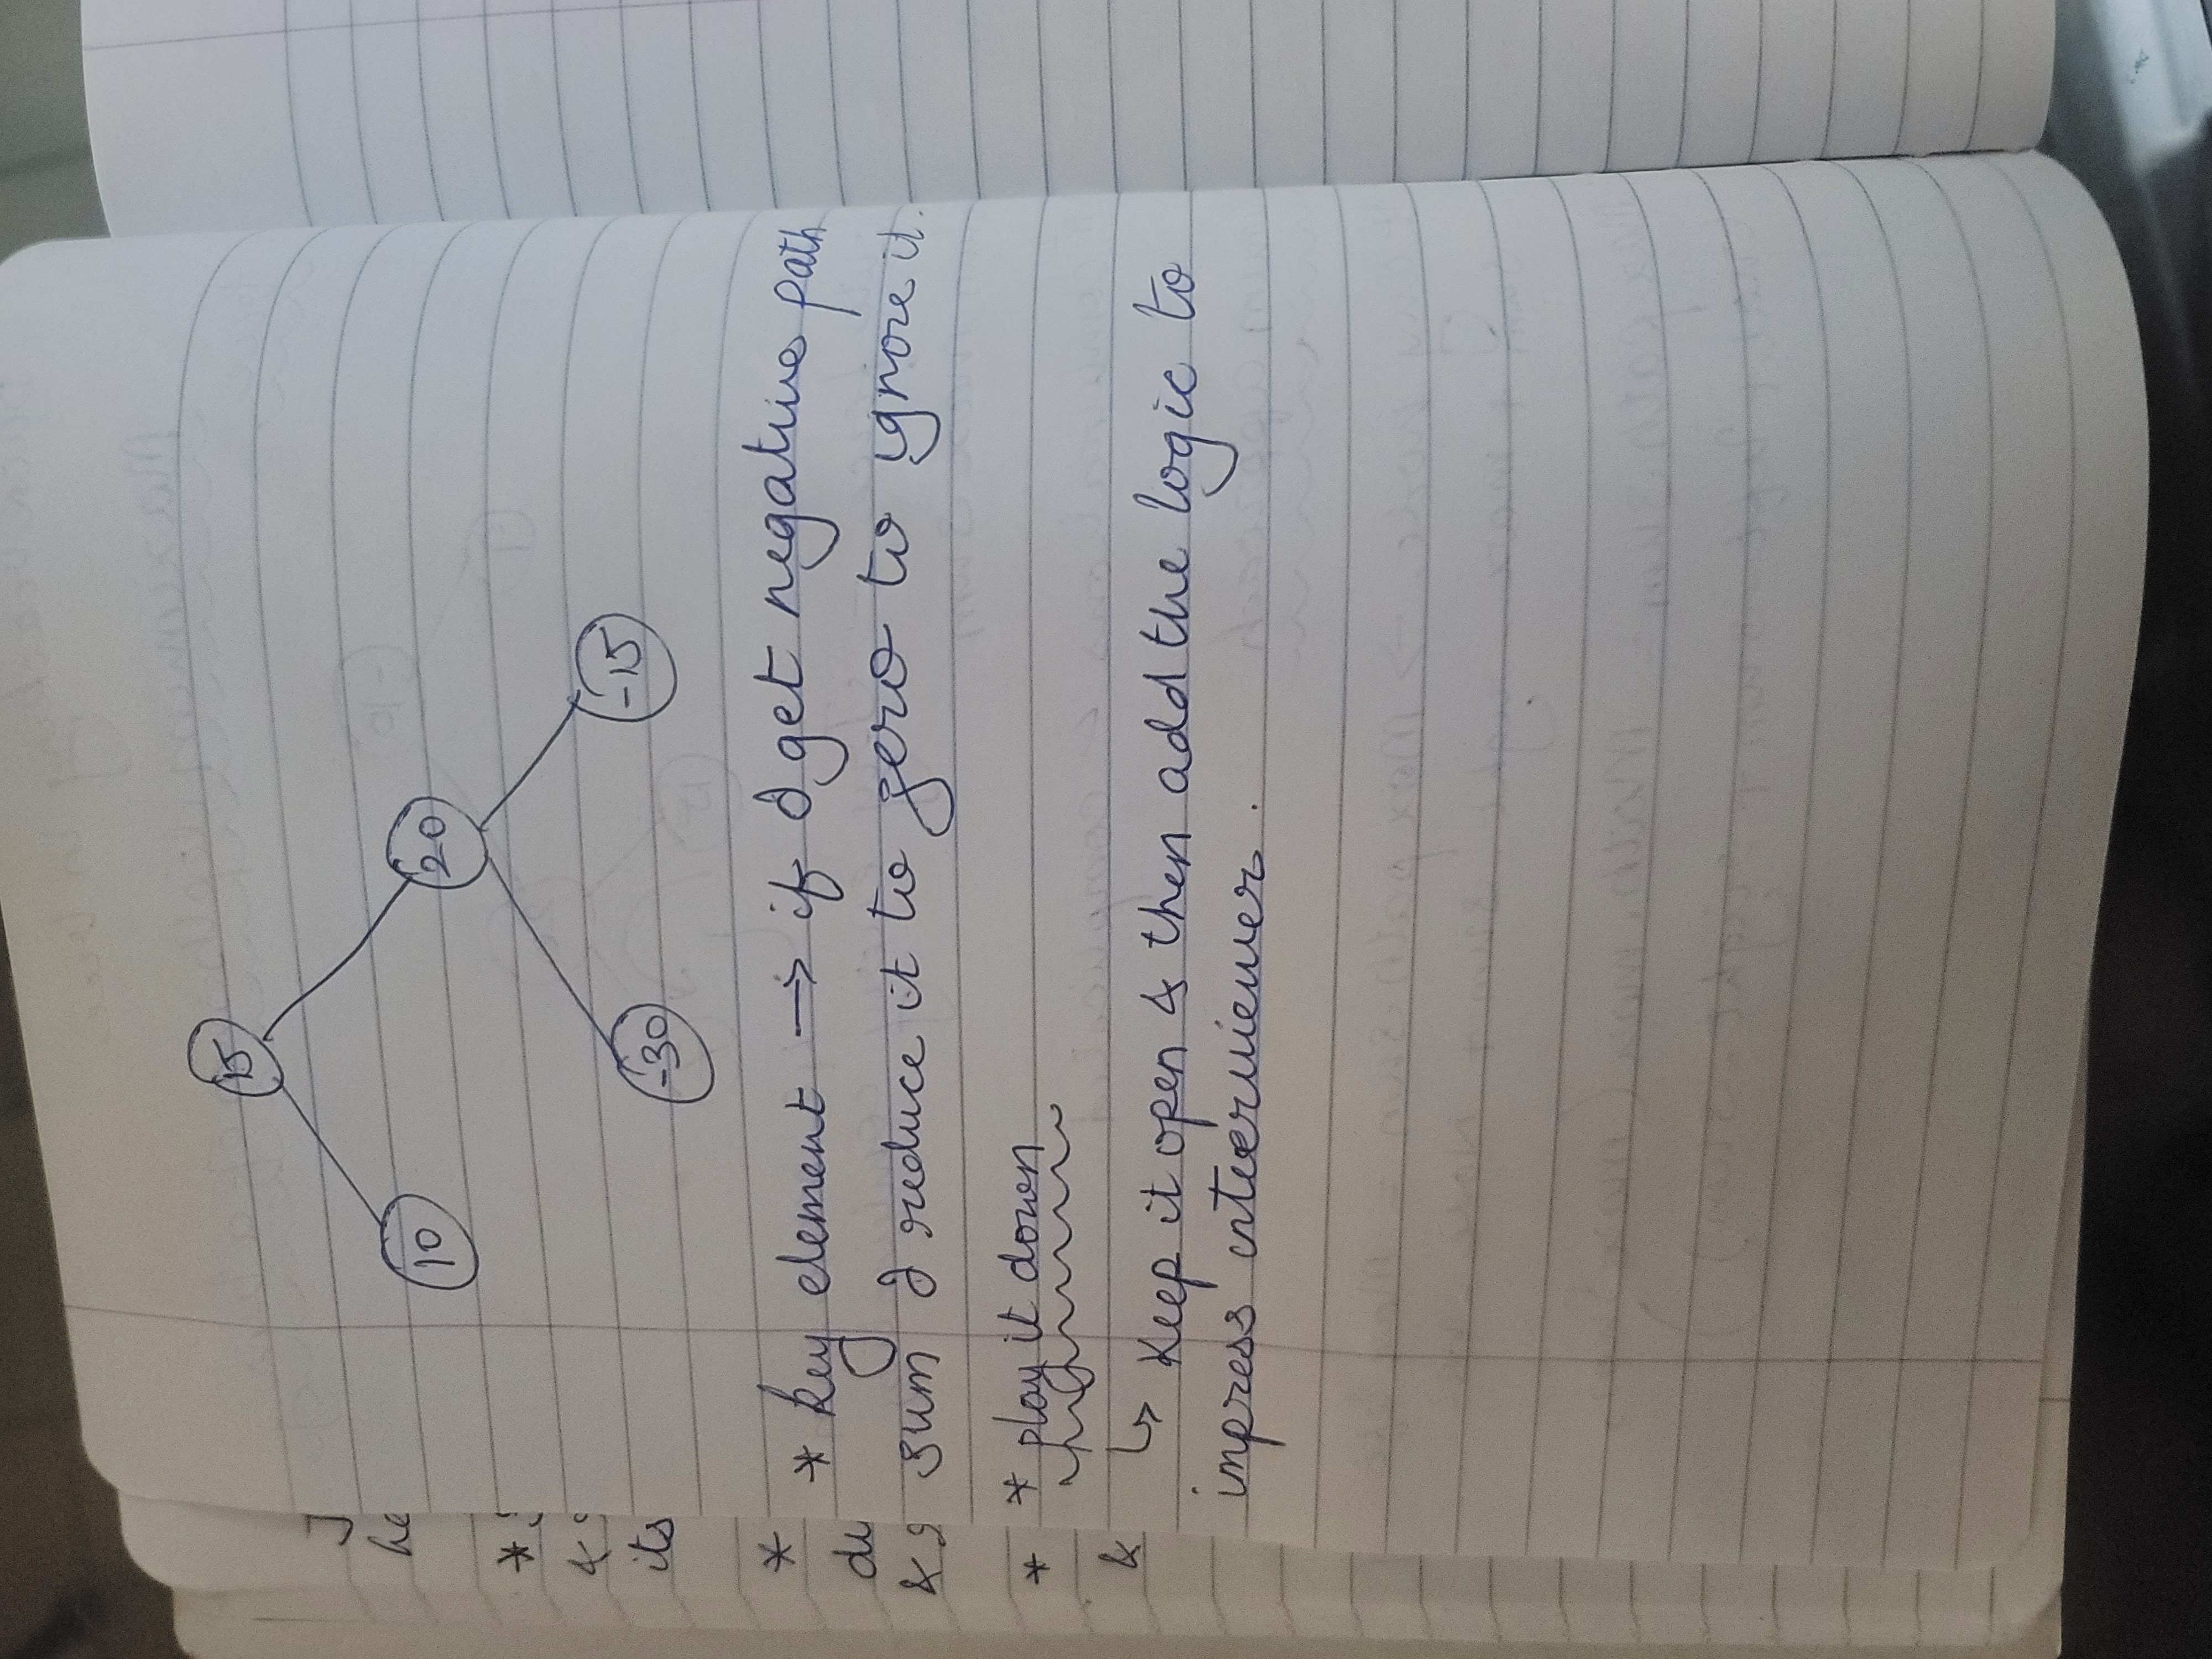 15
10
20
-30
-15
* key element → if I get negative path
sum I reduce it to zero to ignore it.
* play it down
↳ Keep it open & then add the logic to
impress interviewer.
J
he
*
&
its
*
du
&
*
&